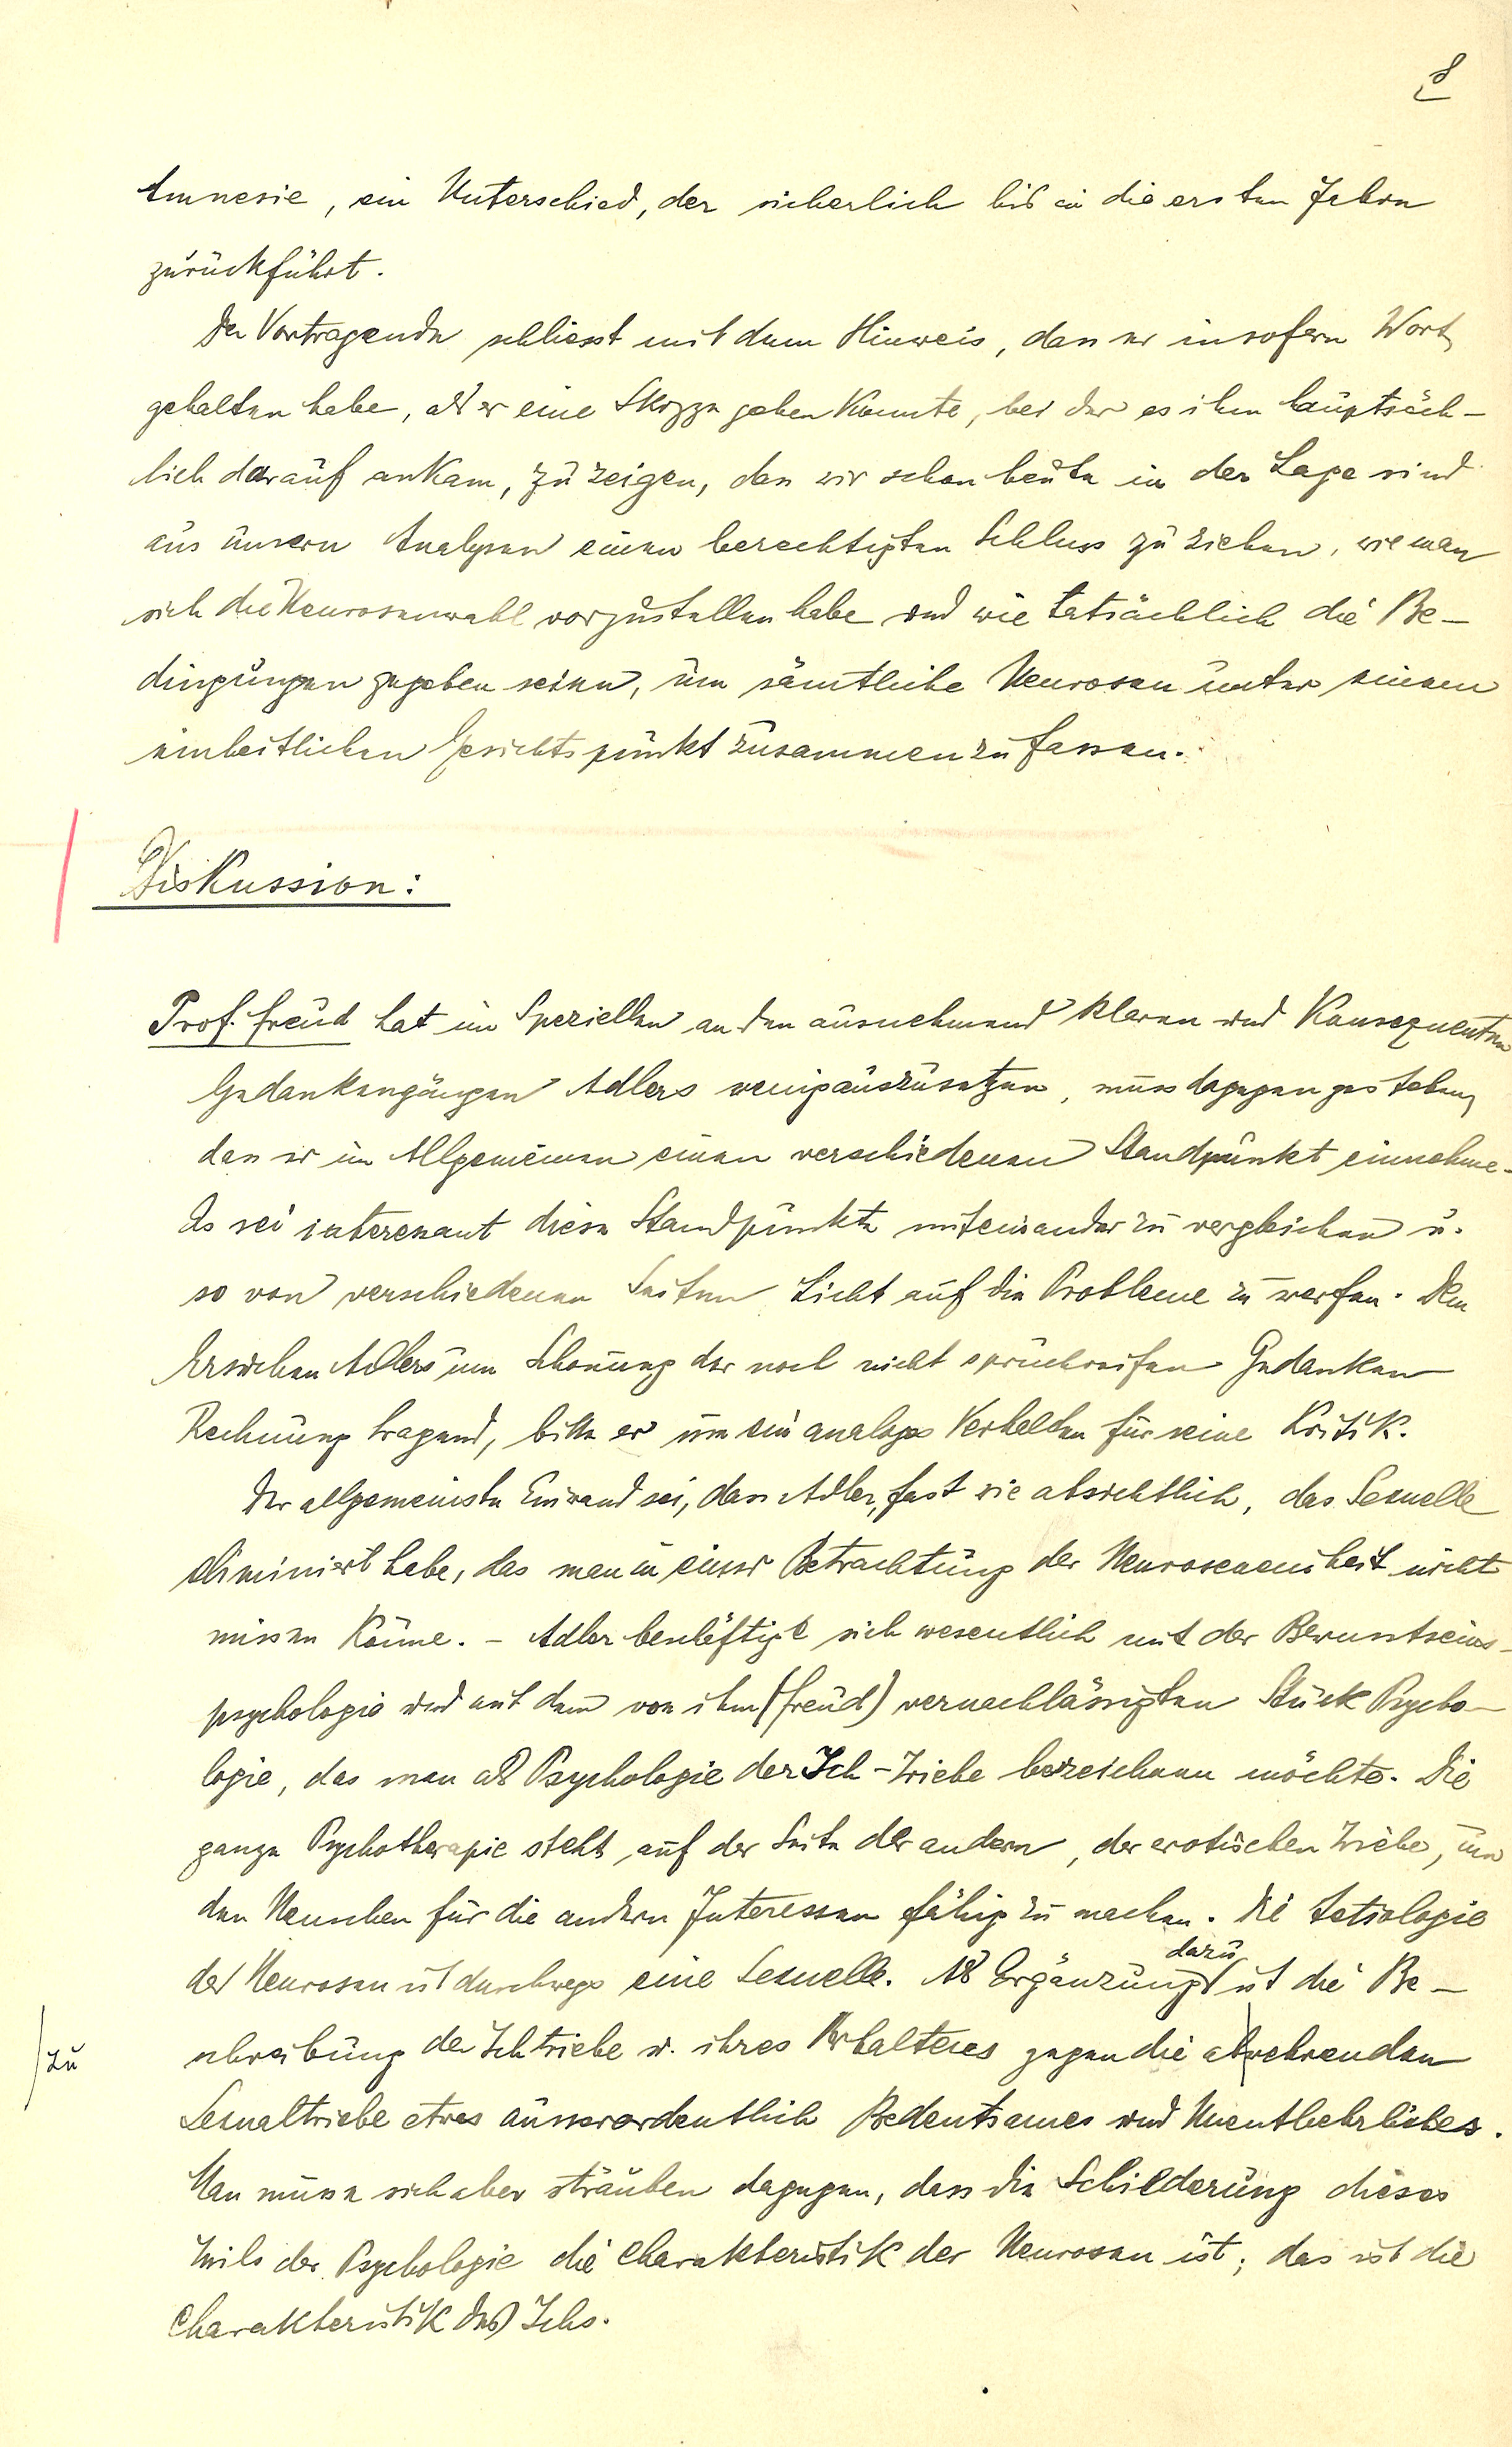 8
Amnesie, ein Unterschied, der sicherlich bis in die ersten Jahre
zurückführt.
Der Vortragende schliesst mit dem Hinweis, dass er insofern Wort
gehalten habe, als er eine Skizze geben konnte, bei der es ihm hauptsäch-
lich darauf ankam, zu zeigen, dass wir schon heute in der Lage sind
aus unsern Analysen einen berechtigten Schluss zu ziehen, wie man
sich die Neurosenwahl vorzustellen habe und wie tatsächlich die Be-
dingungen gegeben seien, um sämtliche Neurosen unter einem
einheitlichen Gesichtspunkt zusammenzufassen.
Diskussion:
Prof. Freud hat im Speziellen an den ausnehmend klaren und konsequenten
Gedankengängen Adlers wenig auszusetzen, muss dagegen gestehen,
dass er im Allgemeinen einen verschiedenen Standpunkt einnehme.
Es sei interessant diese Standpunkte miteinander zu vergleichen u.
so von verschiedenen Seiten Licht auf die Probleme zu werfen. Dem
Ersuchen Adlers um Schonung der noch nicht spruchreifen Gedanken
Rechnung tragend, bitte er um ein analoges Verhalten für seine Kritik.
Der allgemeinste Einwand sei, dass Adler, fast wie absichtlich, das Sexuelle
eliminiert habe, das man in einer Betrachtung der Neuroseneinheit nicht
missen könne. – Adler beschäftige sich wesentlich mit der Bewusstseins-
psychologie und mit dem von ihm (Freud) vernachlässigten Stück Psycho-
logie, das man als Psychologie der Ich-Triebe bezeichnen möchte. Die
ganze Psychotherapie steht auf der Seite der andern, der erotischen Triebe, um
den Menschen für die andern Interessen fähig zu machen. Die Aetiologie
der Neurosen ist durchwegs eine Sexuelle. Als Ergänzung dazu ist die Be-
schreibung der Ichtriebe u. ihres Verhaltens gegen die abwehrenden
zu
Sexualtriebe etwas ausserordentlich Bedeutsames und Unentbehrliches.
Man müsse sich aber sträuben dagegen, dass die Schilderung dieses
Teils der Psychologie die Charakteristik der Neurosen ist; das ist die
Charakteristik des Ichs.